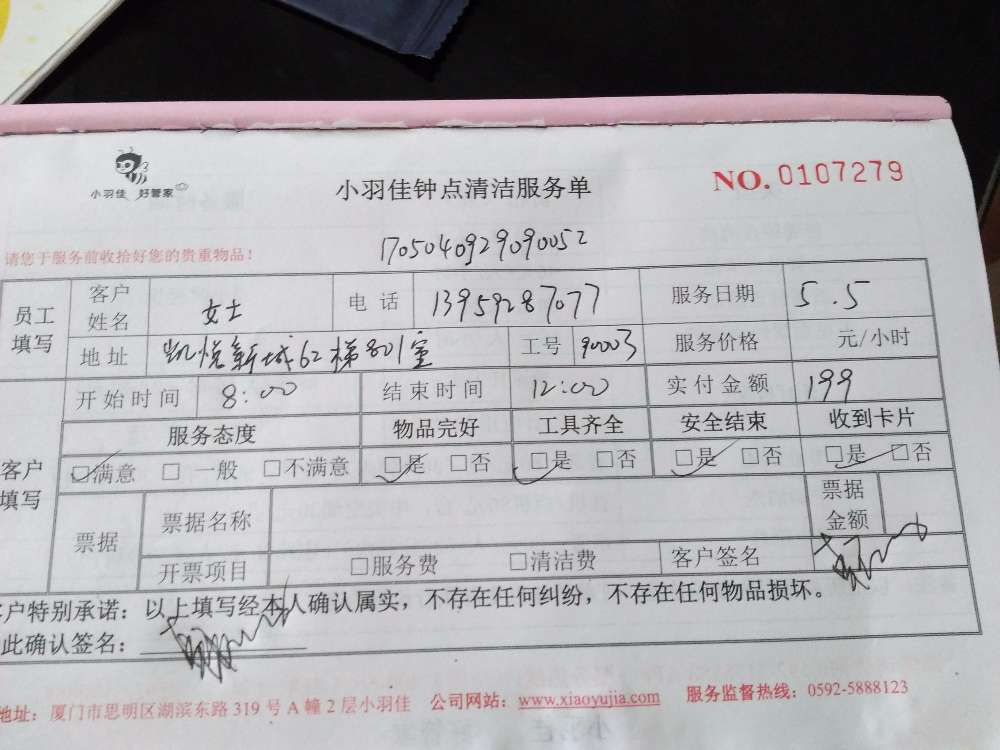 小羽佳 好管家
小羽佳钟点清洁服务单
NO. 0107279
请您于服务前收拾好您的贵重物品!
1705040929090052
员工填写 客户姓名 女士 电话 13959287077 服务日期 5.5
地址 凯悦新城62梯801室 工号 90003 服务价格 元/小时
客户填写 开始时间 8:00 结束时间 12:00 实付金额 199
服务态度 物品完好 工具齐全 安全结束 收到卡片
☑满意 □一般 □不满意 ☑是 □否 ☑是 □否 ☑是 □否 ☑是 □否
票据 票据名称 票据金额
开票项目 □服务费 □清洁费 客户签名
客户特别承诺:以上填写经本人确认属实,不存在任何纠纷,不存在任何物品损坏。
此确认签名:
地址:厦门市思明区湖滨东路319号A幢2层小羽佳 公司网站:www.xiaoyujia.com 服务监督热线:0592-5888123